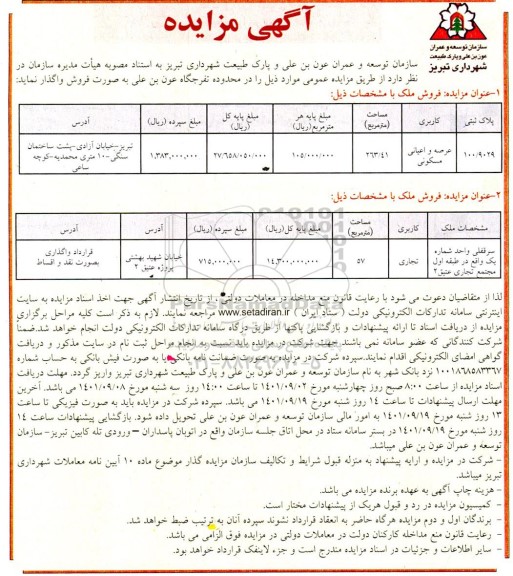 آگهی مزایده
سازمان توسعه و عمران
عون بن علی و پارک طبیعت
شهرداری تبریز
سازمان توسعه و عمران عون بن علی و پارک طبیعت شهرداری تبریز به استناد مصوبه هیأت مدیره سازمان در
نظر دارد از طریق مزایده عمومی موارد ذیل را در محدوده تفرجگاه عون بن علی به صورت فروش واگذار نماید:
۱-عنوان مزایده: فروش ملک با مشخصات ذیل:
پلاک ثبتی کاربری مساحت (مترمربع) مبلغ پایه هر مترمربع(ریال) مبلغ پایه کل (ریال) مبلغ سپرده (ریال) آدرس
۱۰۰/۹۰۲۹ عرصه و اعیانی مسکونی ۲۶۳/۴۱ ۱۰۵/۰۰۰/۰۰۰ ۲۷/۶۵۸/۰۵۰/۰۰۰ ۱,۳۸۳,۰۰۰,۰۰۰ تبریز-خیابان آزادی-پشت ساختمان سنگی-۱۰ متری محمدیه-کوچه ساعی
۲-عنوان مزایده: فروش ملک با مشخصات ذیل:
مشخصات ملک کاربری مساحت (مترمربع) مبلغ پایه کل(ریال) مبلغ سپرده (ریال) آدرس توضیحات
سرقفلی واحد شماره یک واقع در طبقه اول مجتمع تجاری عتیق۲ تجاری ۵۷ ۱۴,۳۰۰,۰۰۰,۰۰۰ ۷۱۵,۰۰۰,۰۰۰ خیابان شهید بهشتی پروژه عتیق ۲ قرارداد واگذاری بصورت نقد و اقساط
لذا از متقاضیان دعوت می شود با رعایت قانون منع مداخله در معاملات دولتی، از تاریخ انتشار آگهی جهت اخذ اسناد مزایده به سایت
اینترنتی سامانه تدارکات الکترونیکی دولت (ستاد ایران) www.setadiran.ir مراجعه نمایند. لازم به ذکر است کلیه مراحل برگزاری
مزایده از دریافت اسناد تا ارائه پیشنهادات و بازگشایی پاکتها از طریق درگاه سامانه تدارکات الکترونیکی دولت انجام خواهد شد.ضمناً
شرکت کنندگانی که عضو سامانه نمی باشند جهت شرکت در مزایده باید نسبت به انجام مراحل ثبت نام در سایت مذکور و دریافت
گواهی امضای الکترونیکی اقدام نمایند.سپرده شرکت در مزایده بصورت ضمانت نامه بانکی یا به صورت فیش بانکی به حساب شماره
۱۰۰۱۸۶۸۵۸۳۳۶۷ نزد بانک شهر به نام سازمان توسعه و عمران عون بن علی و پارک طبیعت شهرداری تبریز واریز گردد. مهلت دریافت
اسناد مزایده از ساعت ۸:۰۰ صبح روز چهارشنبه مورخ ۱۴۰۱/۰۹/۰۲ تا ساعت ۱۴:۰۰ روز سه شنبه مورخ ۱۴۰۱/۰۹/۰۸ می باشد. آخرین
مهلت ارسال پیشنهادات تا ساعت ۱۴ روز شنبه مورخ ۱۴۰۱/۰۹/۱۹ می باشد. سپرده شرکت در مزایده باید به صورت فیزیکی تا ساعت
۱۳ روز شنبه مورخ ۱۴۰۱/۰۹/۱۹ به امور مالی سازمان توسعه و عمران عون بن علی تحویل داده شود. بازگشایی پیشنهادات ساعت ۱۴
روز شنبه مورخ ۱۴۰۱/۰۹/۱۹ در بستر سامانه ستاد در محل اتاق جلسه سازمان واقع در اتوبان پاسداران – ورودی تله کابین تبریز- سازمان
توسعه و عمران عون بن علی میباشد.
- شرکت در مزایده و ارایه پیشنهاد به منزله قبول شرایط و تکالیف سازمان مزایده گذار موضوع ماده ۱۰ آیین نامه معاملات شهرداری
تبریز میباشد.
- هزینه چاپ آگهی به عهده برنده مزایده می باشد.
- کمیسیون مزایده در رد و قبول هریک از پیشنهادات مختار است.
- برندگان اول و دوم مزایده هرگاه حاضر به انعقاد قرارداد نشوند سپرده آنان به ترتیب ضبط خواهد شد.
- رعایت قانون منع مداخله کارکنان دولت در معاملات دولتی در مزایده فوق الزامی می باشد.
- سایر اطلاعات و جزئیات در اسناد مزایده مندرج است و جزء لاینفک قرارداد خواهد بود.